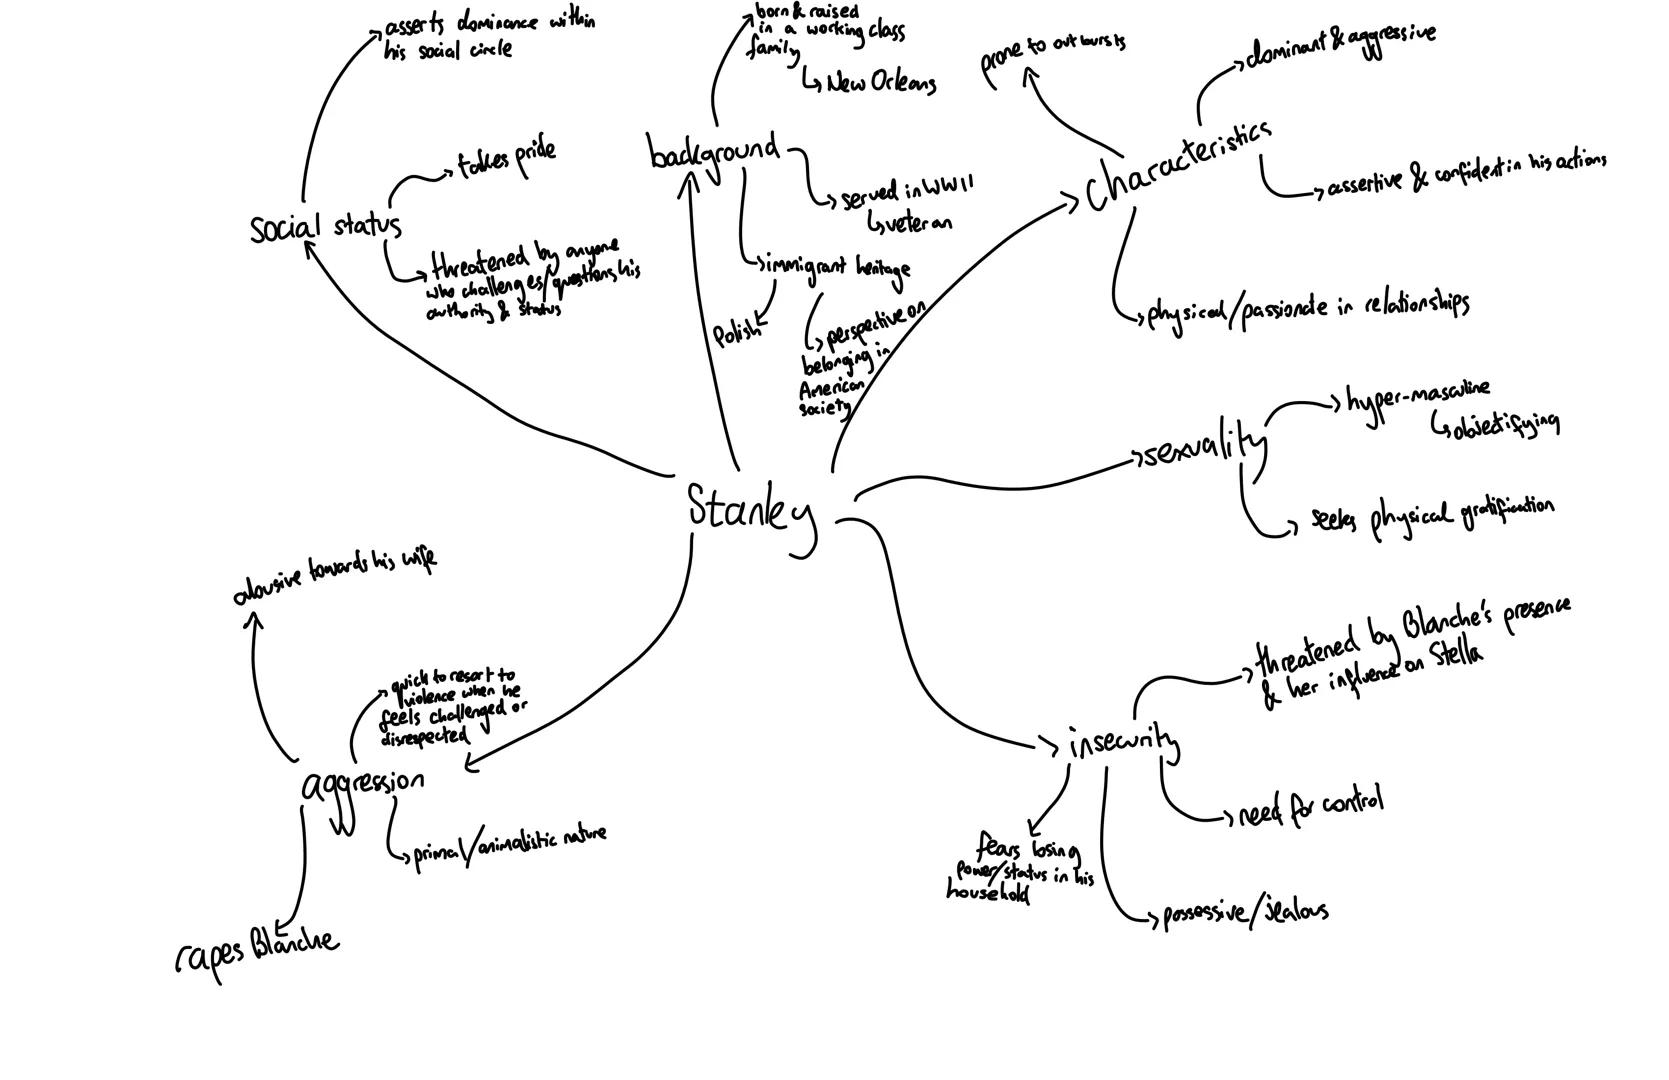 asserts dominance within
his social circle
takes pride
social status
threatened by anyone
who challenges/questions his
authority & status
born & raised
in a working class
family
New Orleans
background
served in WWII
veteran
immigrant heritage
Polish
perspective on
belonging in
American
society
prone to outbursts
dominant & aggressive
characteristics
assertive & confident in his actions
physical/passionate in relationships
hyper-masculine
objectifying
sexuality
seeks physical gratification
Stanley
abusive towards his wife
quick to resort to
violence when he
feels challenged or
disrespected
aggression
primal/animalistic nature
rapes Blanche
threatened by Blanche's presence
& her influence on Stella
insecurity
need for control
fears losing
power/status in his
household
possessive/jealous